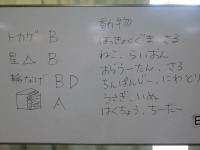 トカゲ B
星△ B
輪なげ BD
A
動物
ほっきょくぐま、さる
ねこ、らいおん
おらうーたん、さる
ちんぱんじー、にわとり
うさぎ、いぬ
はくちょう、ちーたー